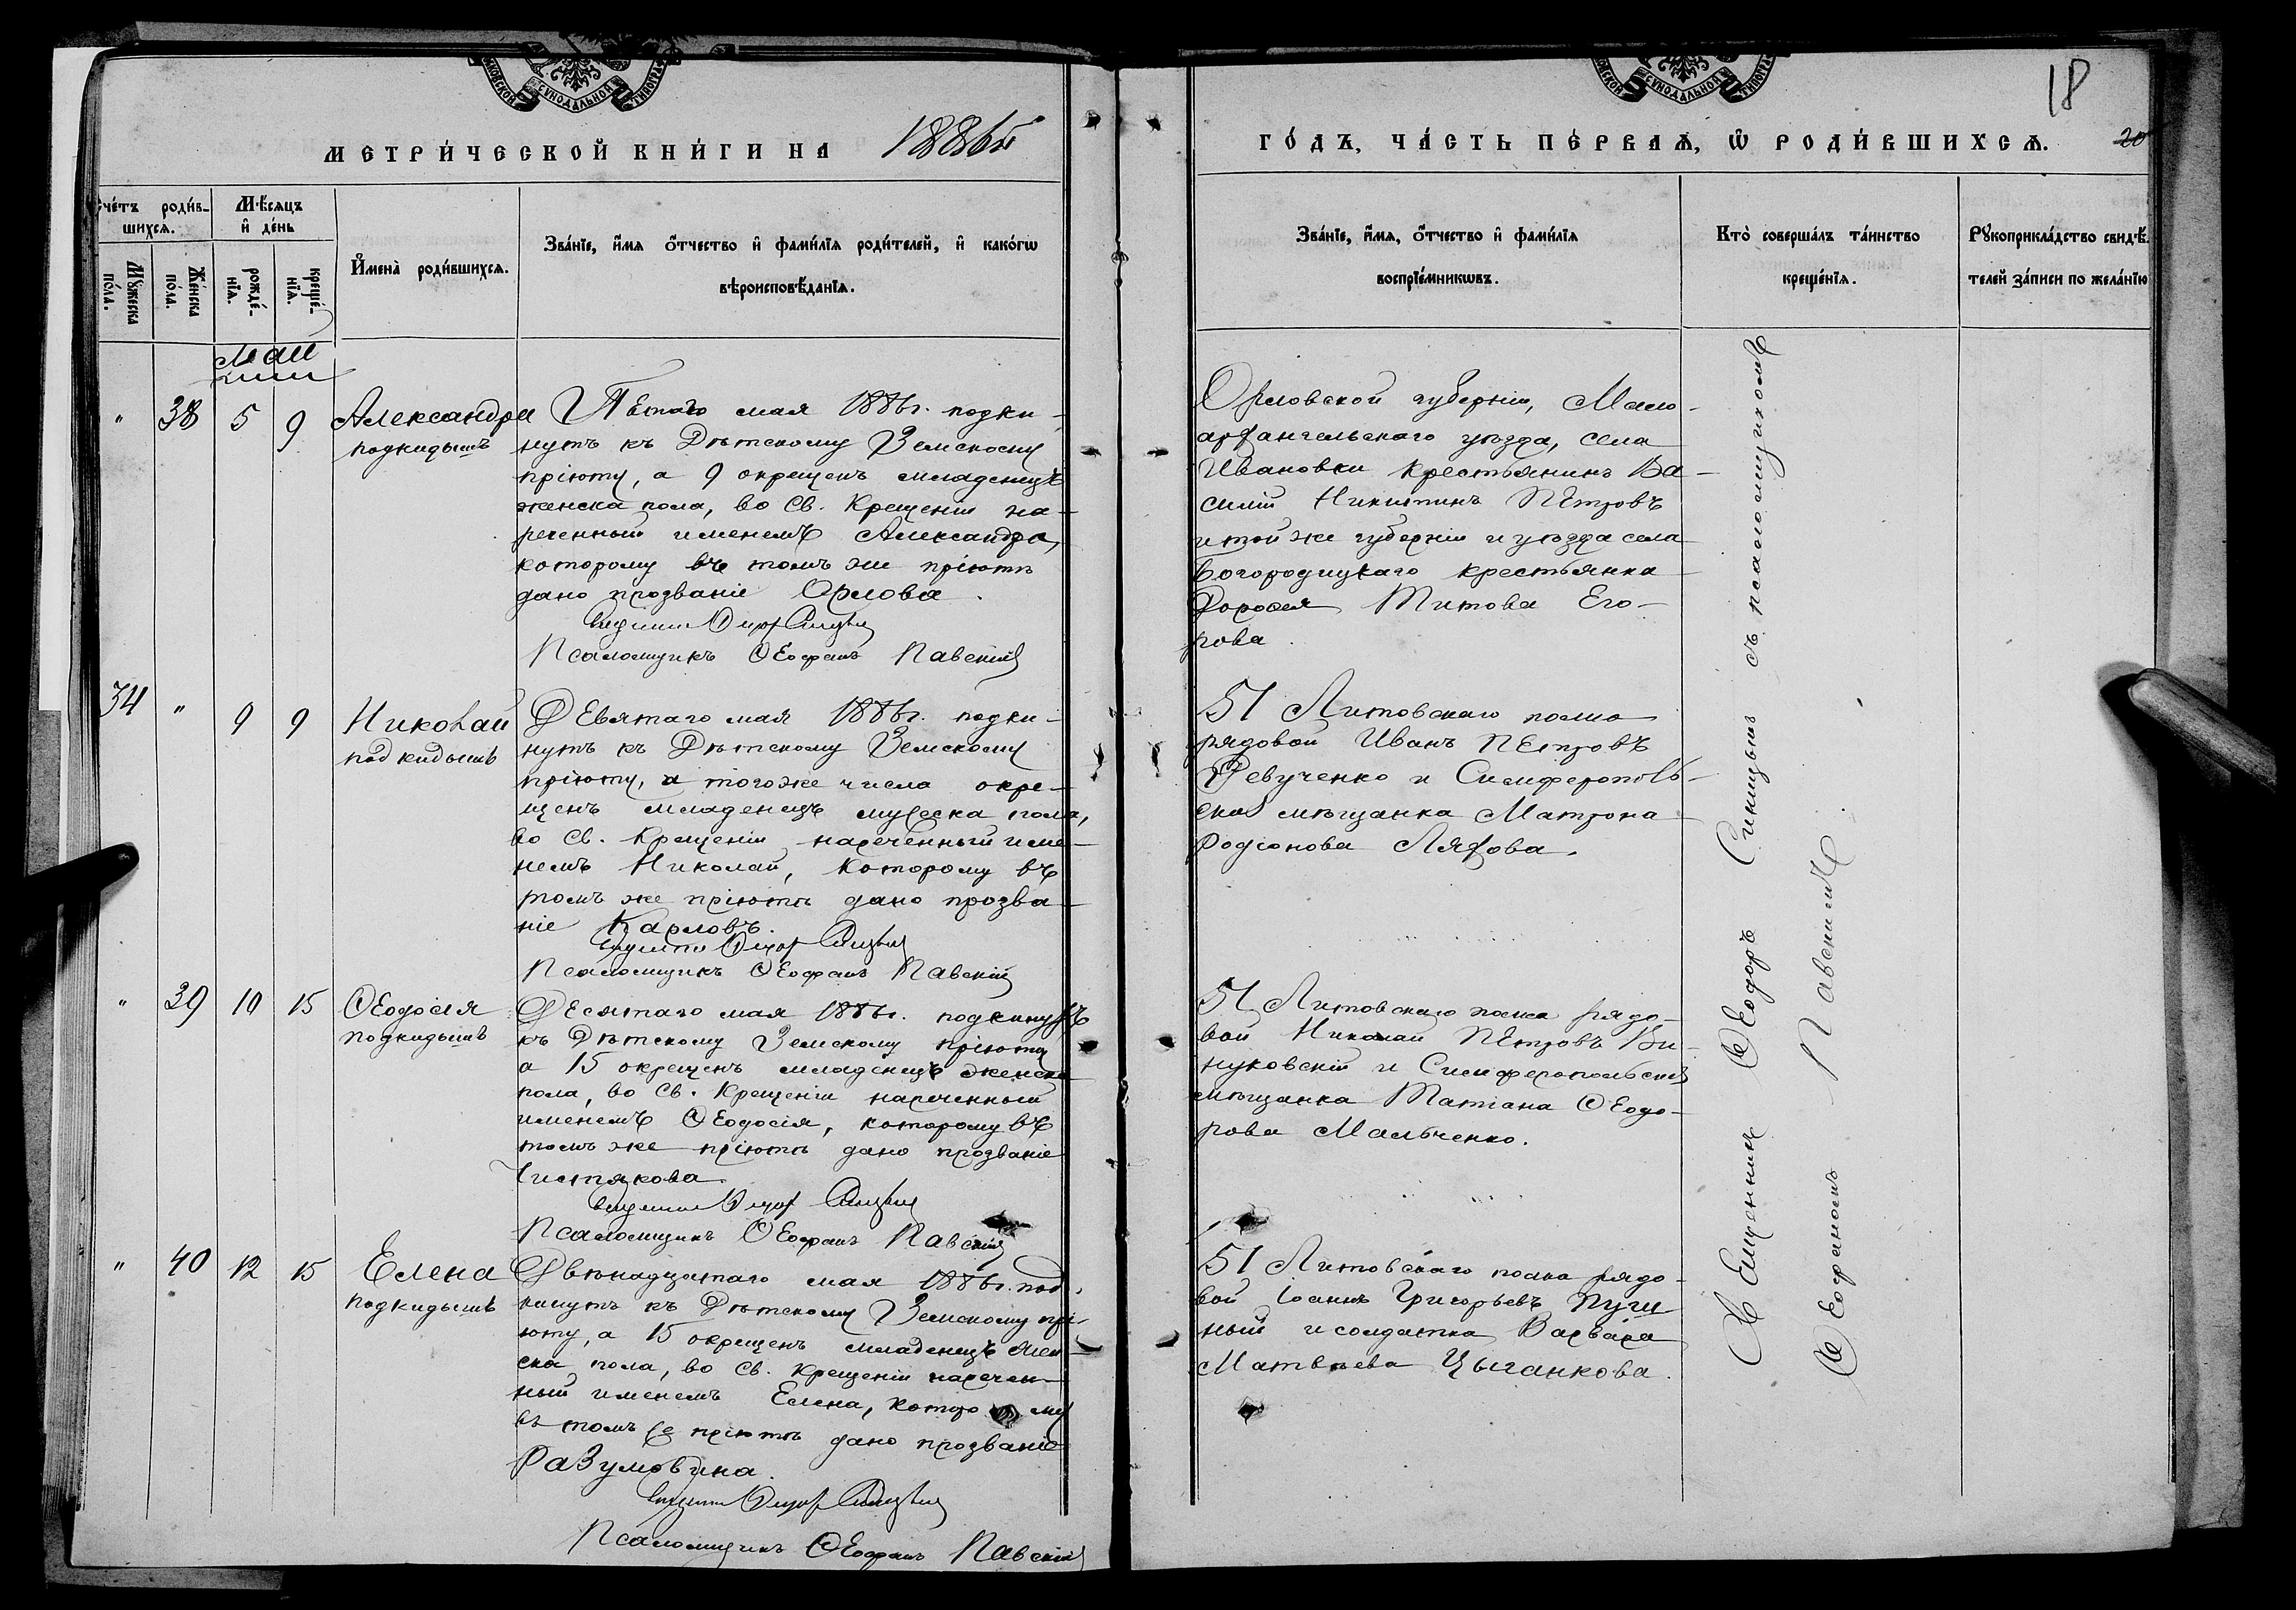 18
20
МЕТРИЧЕСКОЙ КНИГИ НА 1886й
ГОДЪ, ЧАСТЬ ПЕРВАЯ, Ѿ РОДИВШИХСЯ.
Счетъ родившихся.
Мужеска пола.
Женска пола.
Мѣсяцъ и день
рожденія.
крещенія.
Имена родившихся.
Званіе, имя отчество и фамилія родителей, и какогѡ
вѣроисповѣданія.
Званіе, имя, отчество и фамилія
воспріемникѡвъ.
Кто совершалъ таинство
крещенія.
Рукоприкладство свидѣ-
телей записи по желанію
Маій
" 38 5 9
Александра
подкидышъ
Пѣтаго мая 1886г. подки-
нутъ къ Дѣтскому Земскому
пріюту, а 9 окрещенъ младенецъ
женска пола, во Св. Крещеніи на-
реченный именемъ Александра,
которому въ томъ же пріютѣ
дано прозваніе Орлова.
Псаломщикъ Ѳеофанъ Павскій
Орловской губерніи, Мало-
архангельскаго уѣзда, села
Ивановки крестьянинъ Ва-
силій Никитинъ Петровъ
и той же губерніи и уѣзда села
Богородицкаго крестьянка
Дорофея Титова Его-
рова.
34 " 9 9
Николай
подкидышъ
Девятаго мая 1886г. подки-
нутъ къ Дѣтскому Земскому
пріюту, а того же числа окре-
щенъ младенецъ мужеска пола,
во Св. Крещеніи нареченный име-
немъ Николай, которому въ
томъ же пріютѣ дано прозва-
ніе Карловъ.
Псаломщикъ Ѳеофанъ Павскій
51 Литовскаго полка
рядовой Иванъ Петровъ
Ревученко и Симферополь-
ская мѣщанка Матрона
Родіонова Ляхова.
" 39 10 15
Ѳеодосія
подкидышъ
Десятаго мая 1886г. подкинутъ
къ Дѣтскому Земскому пріюту
а 15 окрещенъ младенецъ женска
пола, во Св. Крещеніи нареченный
именемъ Ѳеодосія, которому въ
томъ же пріютѣ дано прозваніе
Чистякова.
Псаломщикъ Ѳеофанъ Павскій
51 Литовскаго полка рядо-
вой Николай Петровъ Ви-
нуковскій и Симферопольская
мѣщанка Татіана Ѳеодо-
рова Мальченко.
" 40 12 15
Елена
подкидышъ
Двѣнадцатаго мая 1886г. под-
кинутъ къ Дѣтскому Земскому прі-
юту, а 15 окрещенъ младенецъ жен-
ска пола, во Св. Крещеніи наречен-
ный именемъ Елена, которому
въ томъ же пріютѣ дано прозваніе
Разумовина.
Псаломщикъ Ѳеофанъ Павскій
51 Литовскаго полка рядо-
вой Іоаннъ Григорьевъ
и солдатка Варвара
Матвѣева Цыганкова.
Священникъ Ѳеодоръ Синицынъ съ псаломщикомъ
Ѳеофаномъ Павскимъ.